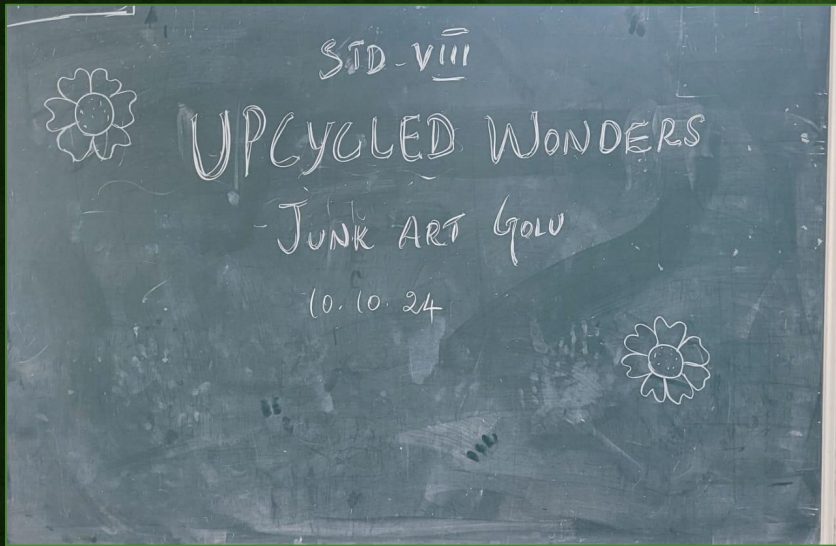 STD-VIII
UPCYCLED WONDERS
- JUNK ART GOLU
10.10.24